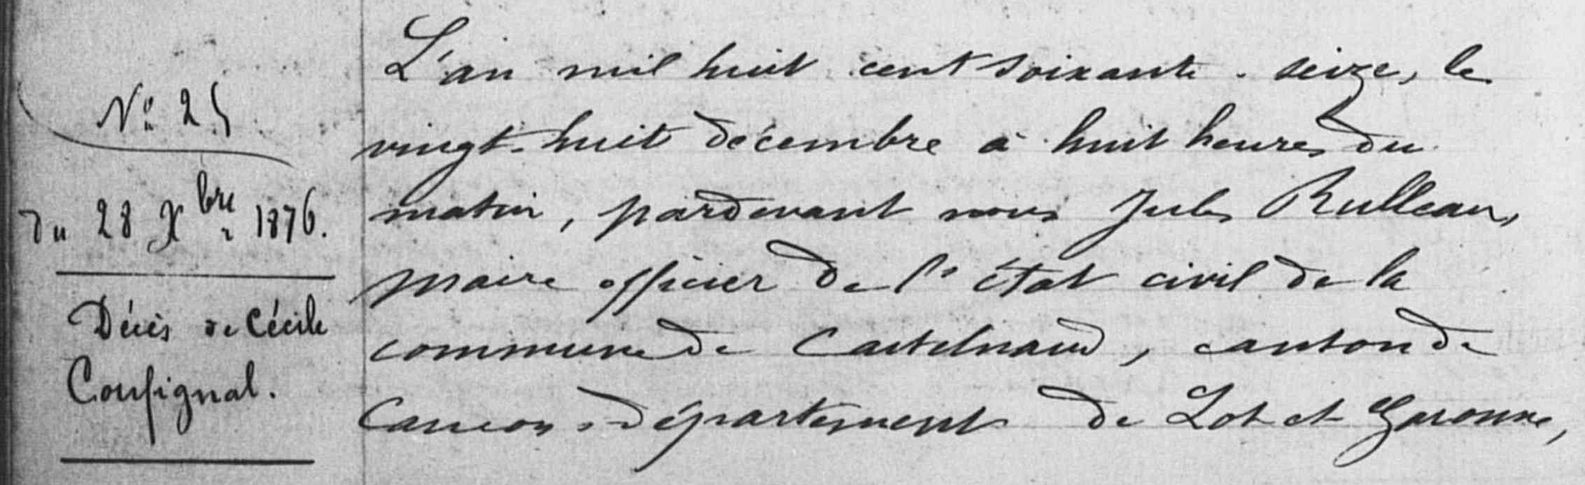 N° 25
du 28 Xbre 1876.
Décès de Cécile
Consignal.
L'an mil huit cent soixante-seize, le
vingt-huit décembre à huit heures du
matin, pardevant nous Jules Rulleau,
maire officier de l'état civil de la
commune de Castelnaud, canton de
Cancon, département de Lot et Garonne,